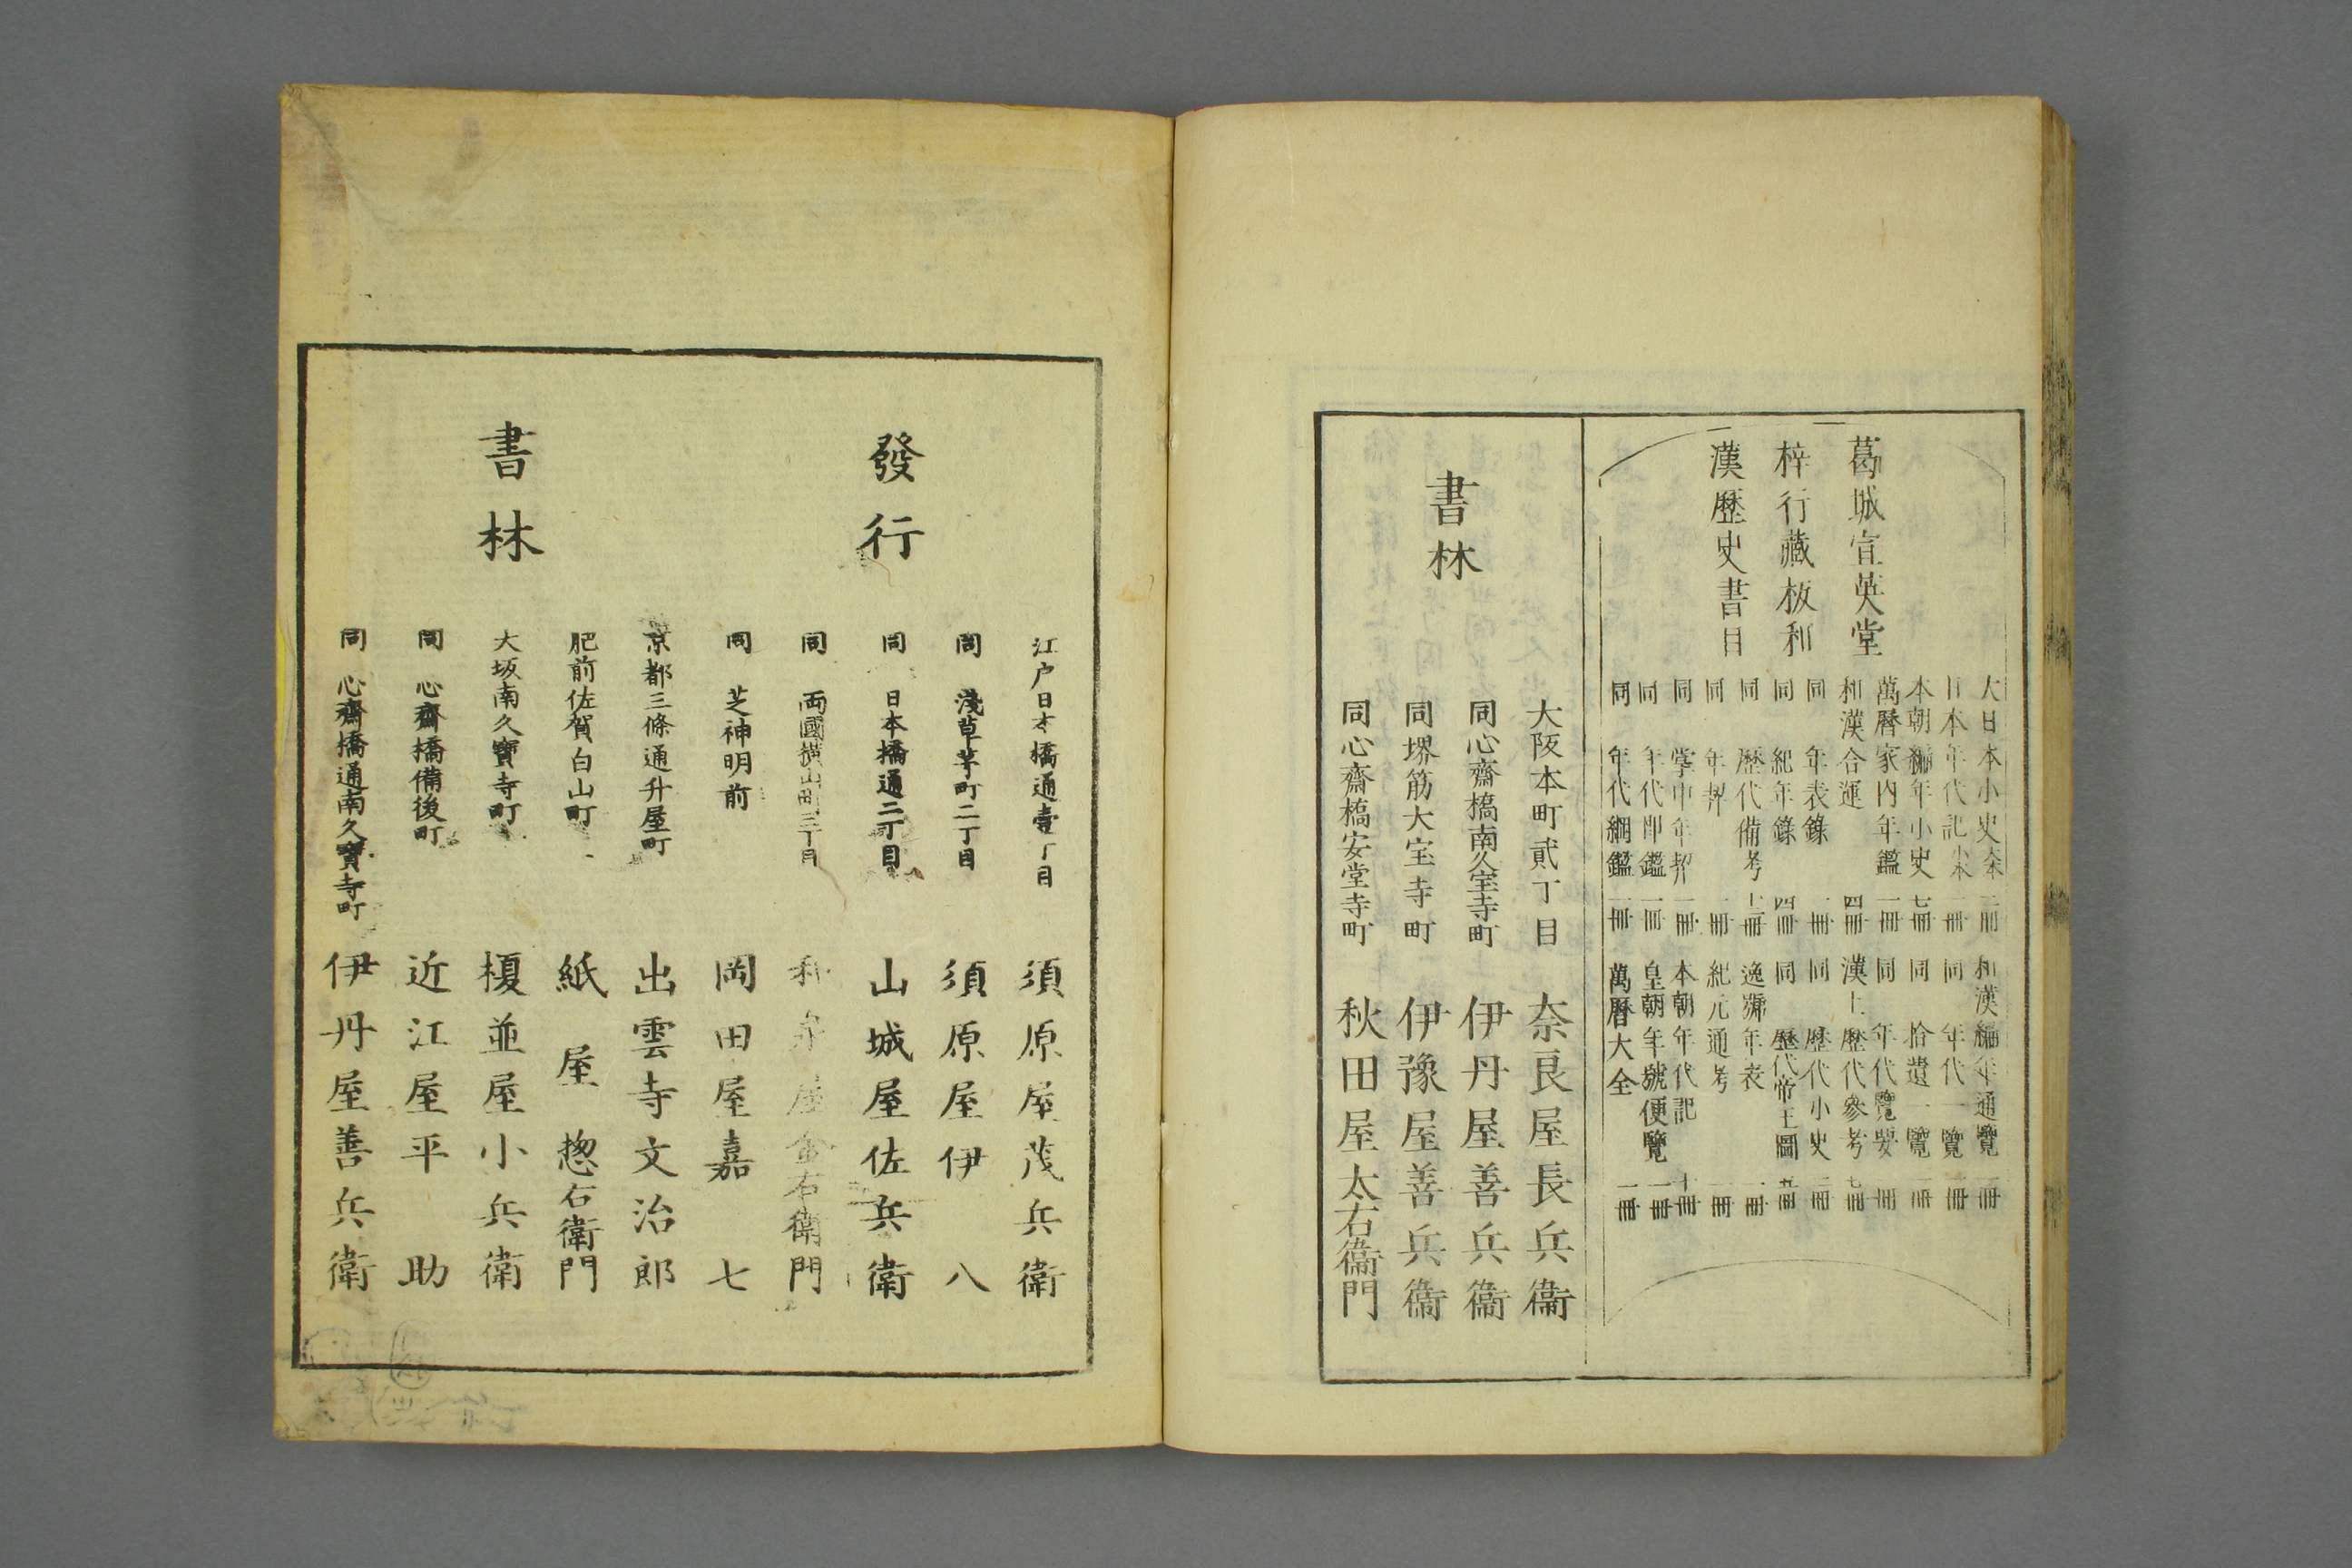 葛城宣英堂
梓行藏板和
漢歷史書目
大日本小史 二冊
日本年代記 一冊
本朝編年小史 七冊
萬曆家内年鑑 一冊
和漢合運 四冊
同 年表錄 一冊
同 紀年錄 四冊
同 歷代備考
同 年契 一冊
同 掌中年契 一冊
同 年代即鑑 一冊
同 年代綱鑑 一冊
和漢編年通覽 一冊
同 年代一覽 一冊
同 拾遺一覽 一冊
同 年代覽要 一冊
漢土歷代參考 七冊
同 歷代小史 二冊
同 歷代帝王圖 五冊
逸號年表 一冊
紀元通考 一冊
本朝年代記 十冊
皇朝年號便覽 一冊
萬曆大全 一冊
書林
大阪本町貳丁目 奈良屋長兵衞
同心齋橋南久宝寺町 伊丹屋善兵衞
同堺筋大宝寺町 伊豫屋善兵衞
同心齋橋安堂寺町 秋田屋太右衞門
發行
書林
江户日本橋通壹丁目 須原屋茂兵衛
同 淺草茅町二丁目 須原屋伊八
同 日本橋通二丁目 山城屋佐兵衛
同 両國横山町三丁目 和泉屋金右衛門
同 芝神明前 岡田屋嘉七
京都三條通升屋町 出雲寺文治郎
肥前佐賀白山町 紙屋惣右衛門
大坂南久寶寺町 榎並屋小兵衛
同 心齋橋備後町 近江屋平助
同 心齋橋通南久寶寺町 伊丹屋善兵衛